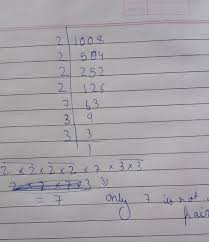 2 | 1008
2 | 504
2 | 252
2 | 126
7 | 63
3 | 9
3 | 3
1
2 × 2 × 2 × 2 × 7 × 3 × 3
= 7 only 7 is not
pair